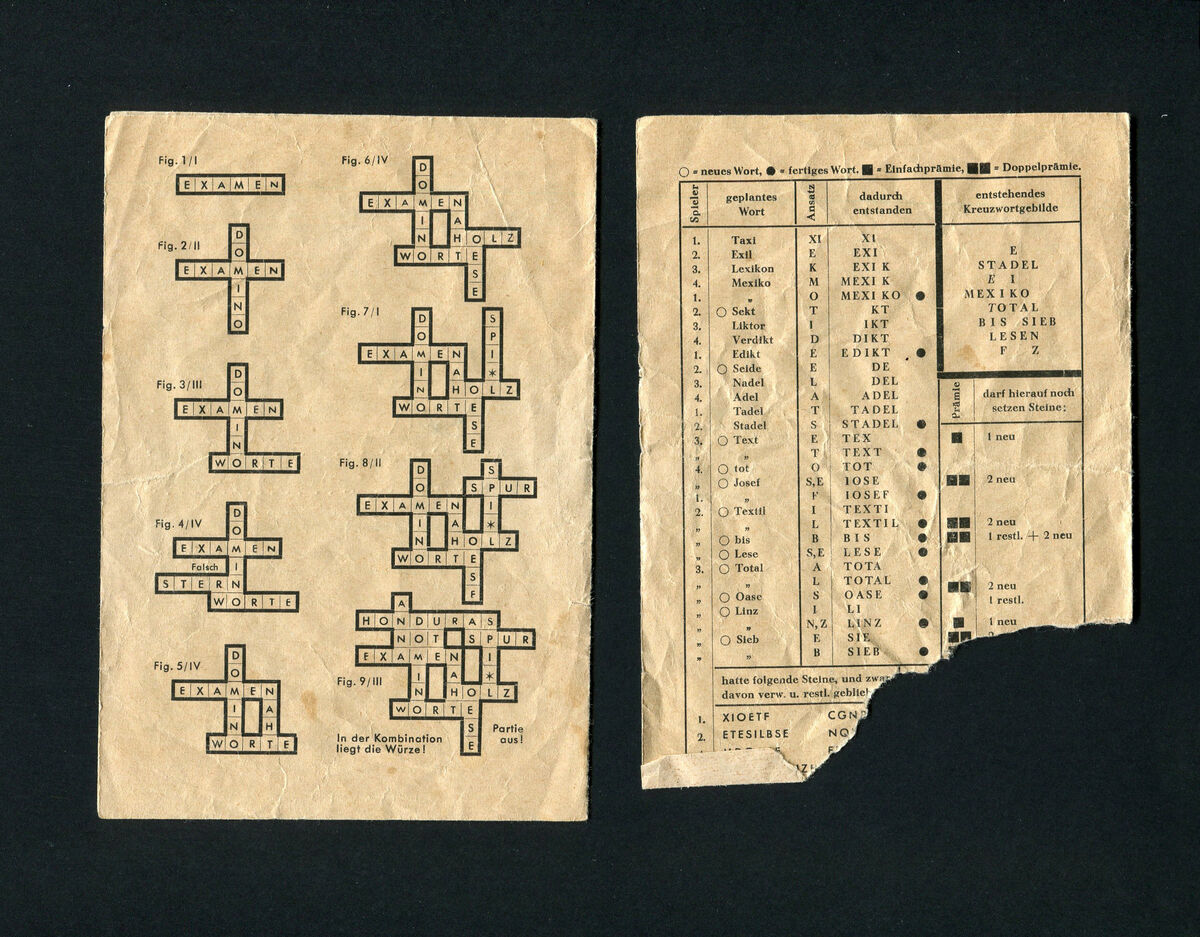 Fig. 1/I
EXAMEN
Fig. 2/II
DOMINO
EXAMEN
Fig. 3/III
DOMINO
EXAMEN
WORTE
Fig. 4/IV
DOMINO
EXAMEN
Falsch
STERN
WORTE
Fig. 5/IV
DOMINO
EXAMEN
NAHT
WORTE
Fig. 6/IV
DOMINO
EXAMEN
HOLZ
WORTE
ESE
Fig. 7/I
DOMINO
SPI*L
EXAMEN
HOLZ
WORTE
ESE
Fig. 8/II
DOMINO
SPUR
EXAMEN
HOLZ
WORTE
ESE
HONDURAS
NOT SPUR
EXAMEN
Fig. 9/III
HOLZ
WORTE
ESE
In der Kombination
liegt die Würze!
Partie
aus!
○ = neues Wort, ● = fertiges Wort. ■ = Einfachprämie, ■■ = Doppelprämie.
Spieler geplantes Wort Ansatz dadurch entstanden
1. Taxi XI XI
2. Exil E EXI
3. Lexikon K EXIK
4. Mexiko M MEXIK
1. „ O MEXIKO ●
2. ○ Sekt T KT
3. Liktor I IKT
4. Verdikt D DIKT
1. Edikt E EDIKT ●
2. ○ Seide E DE
3. Nadel L DEL
4. Adel A ADEL
1. Tadel T TADEL
2. Stadel S STADEL ●
3. ○ Text E TEX
„ „ T TEXT ●
4. ○ tot O TOT ●
„ ○ Josef S,E IOSE
1. „ F IOSEF ●
2. ○ Textil I TEXTI
„ „ L TEXTIL ●
„ ○ bis B BIS ●
„ ○ Lese S,E LESE ●
3. ○ Total A TOTA
„ „ L TOTAL ●
„ ○ Oase S OASE ●
„ ○ Linz I LI
„ „ N,Z LINZ ●
„ ○ Sieb E SIE
„ „ B SIEB ●
entstehendes
Kreuzwortgebilde
E
STADEL
E I
MEXIKO
TOTAL
BIS SIEB
LESEN
F Z
Prämie darf hierauf noch setzen Steine:
■ 1 neu
■■ 2 neu
■■ 2 neu
■■ 1 restl. + 2 neu
■■ 2 neu
1 restl.
■ 1 neu
■■
hatte folgende Steine, und zwar
davon verw. u. restl. geblieb
1. XIOETF CGN
2. ETESILBSE NO